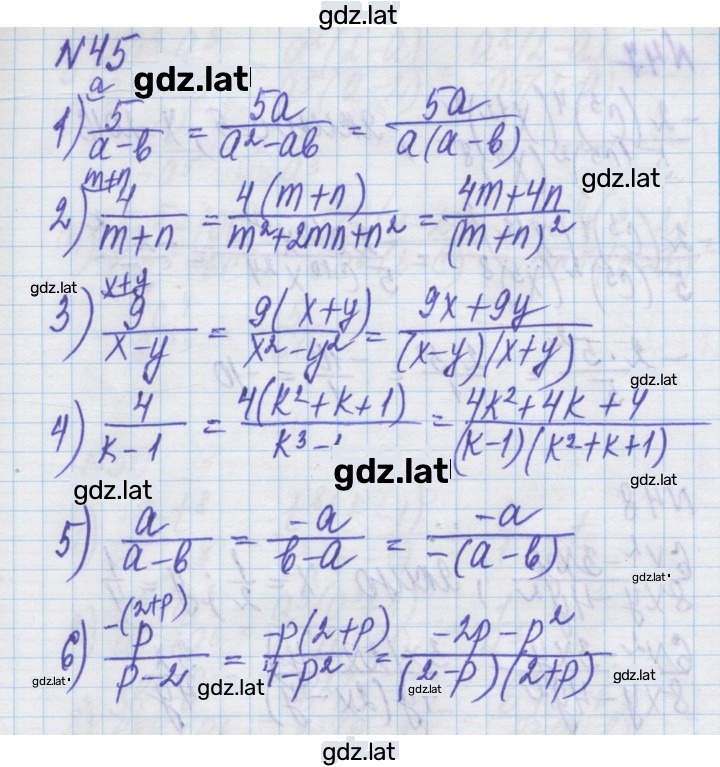 gdz.lat
N45
gdz.lat
1) a 5/(a-b) = 5a/(a²-ab) = 5a/(a(a-b))
gdz.lat
2) m+n 4/(m+n) = 4(m+n)/(m²+2mn+n²) = (4m+4n)/(m+n)²
gdz.lat
3) x+y 9/(x-y) = 9(x+y)/(x²-y²) = (9x+9y)/((x-y)(x+y))
gdz.lat
4) 4/(k-1) = 4(k²+k+1)/(k³-1) = (4k²+4k+4)/((k-1)(k²+k+1))
gdz.lat
gdz.lat
5) a/(a-b) = -a/(b-a) = -a/(-(a-b))
gdz.lat
6) -(2+p) p/(p-2) = -p(2+p)/(4-p²) = (-2p-p²)/((2-p)(2+p))
gdz.lat
gdz.lat
gdz.lat
gdz.lat
gdz.lat